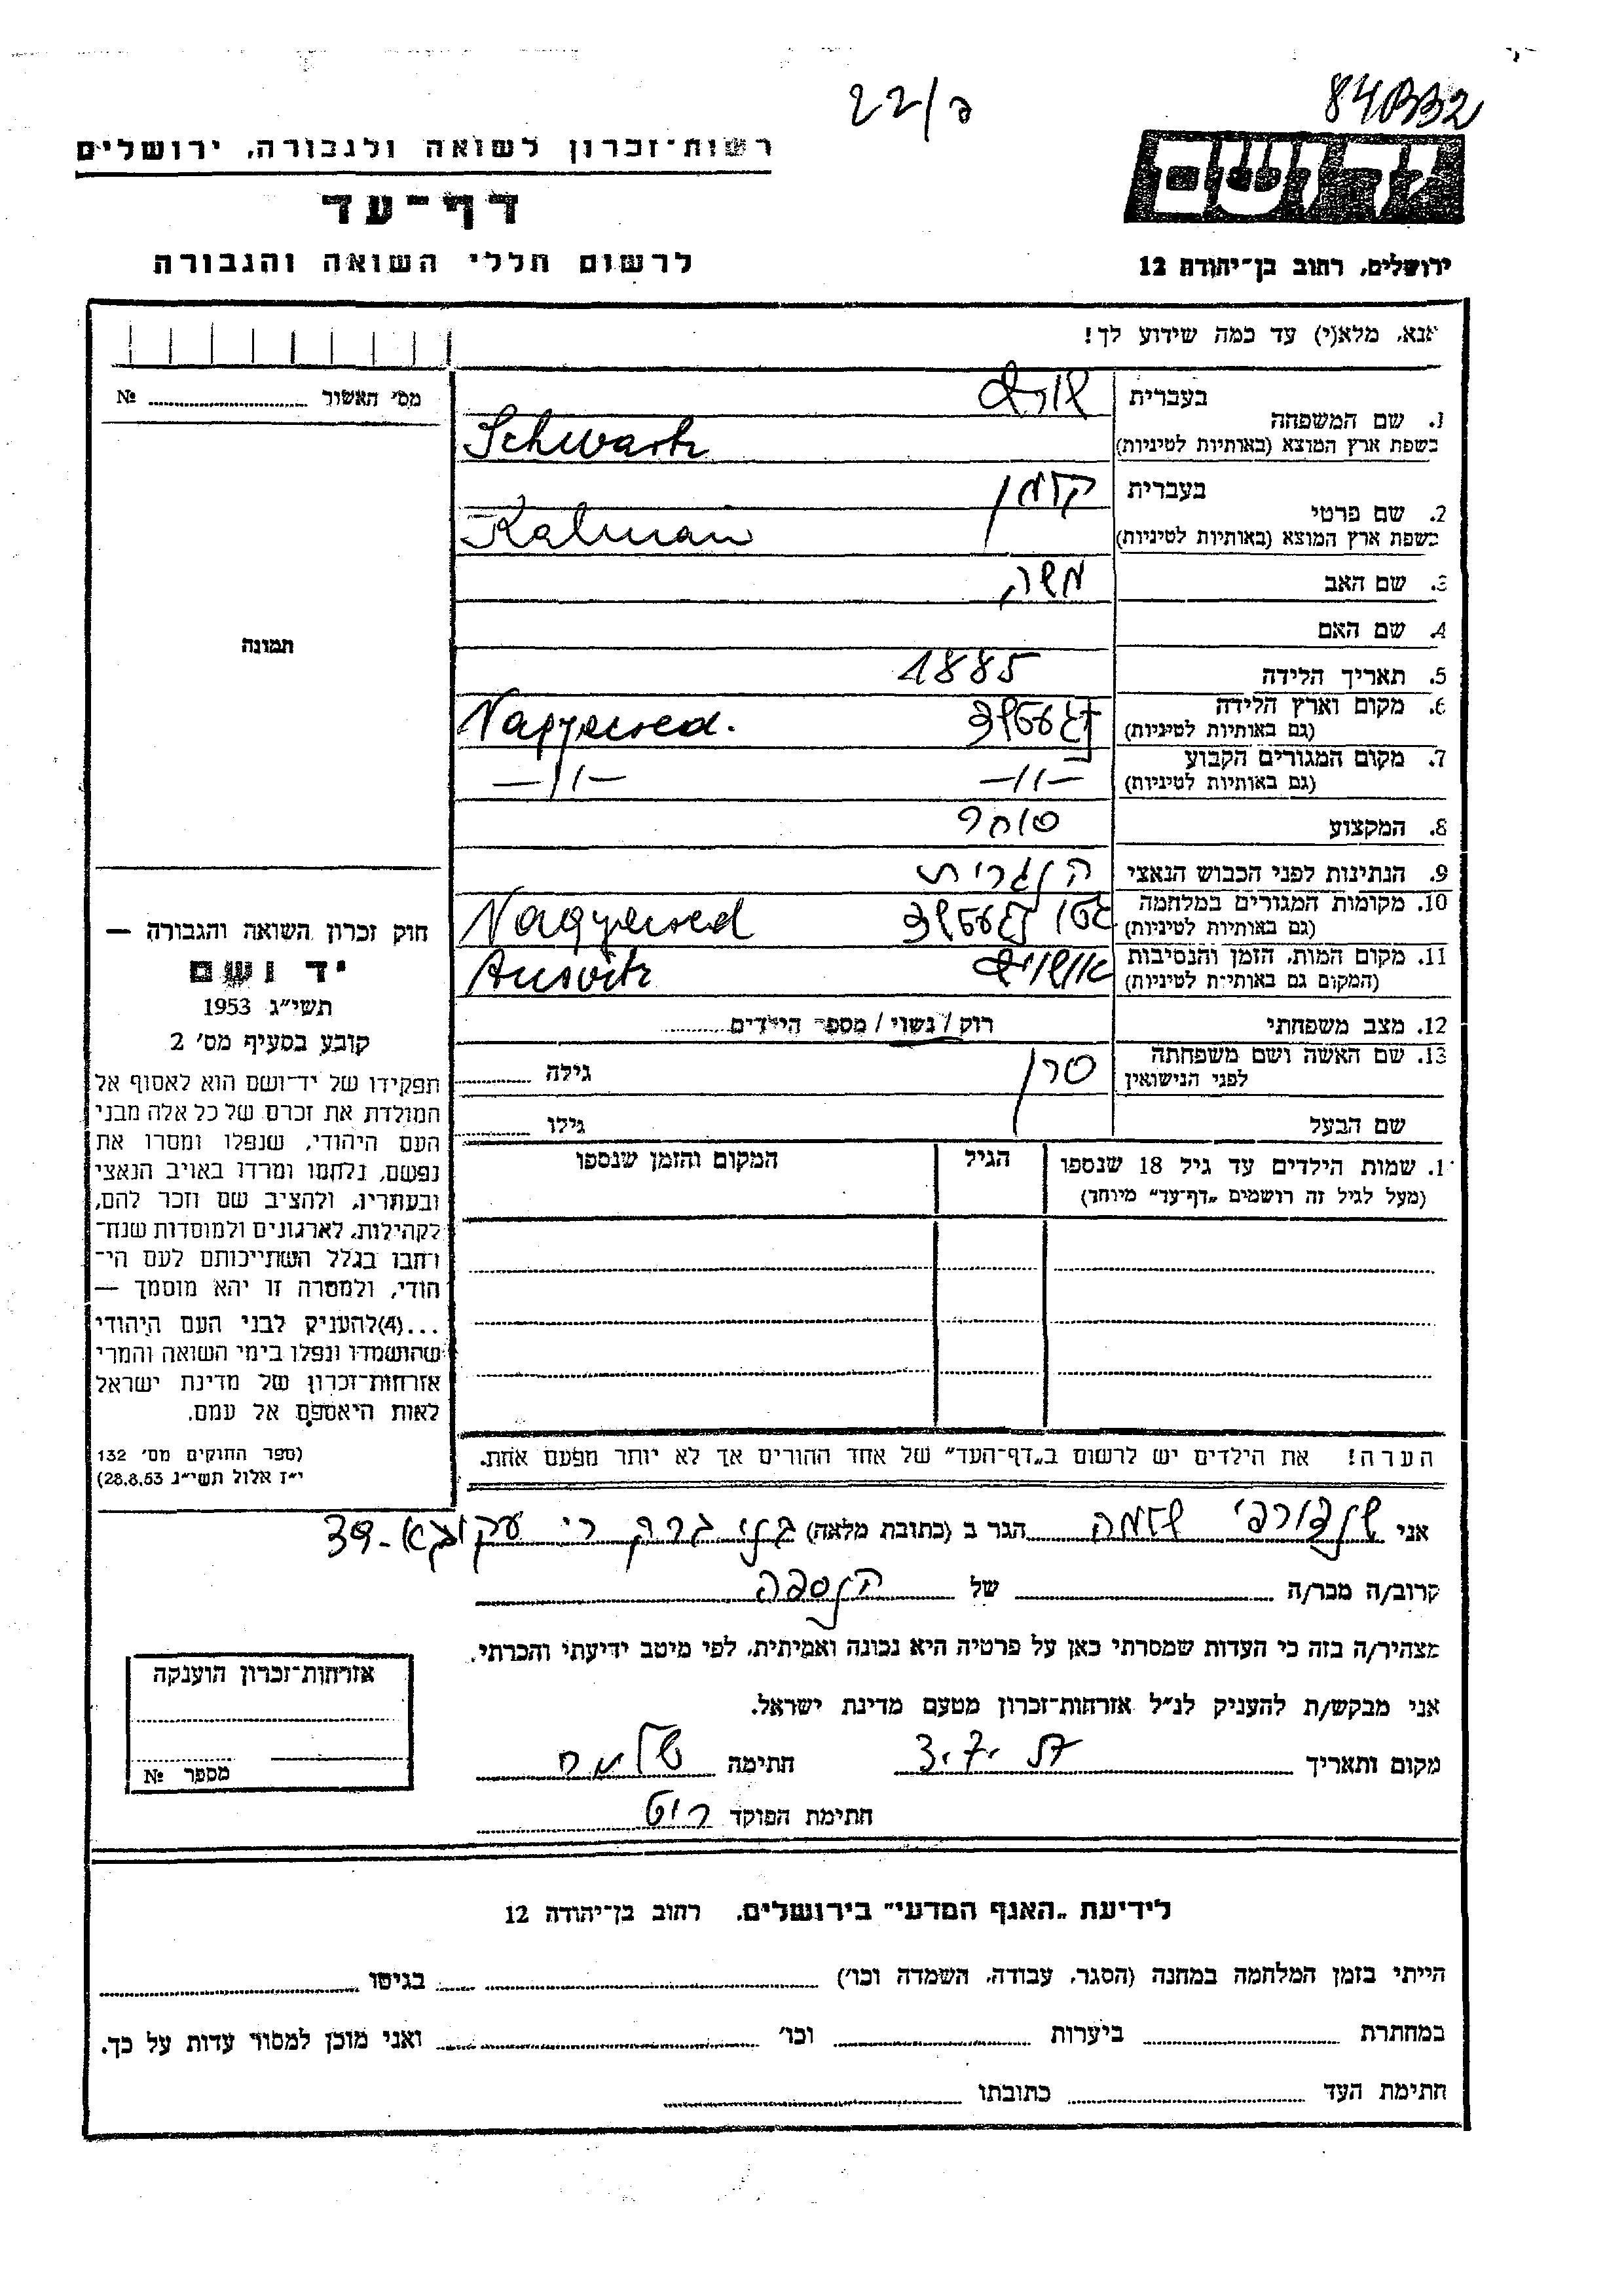 22/פ
84BB2
רשות־זכרון לשואה ולגבורה, ירושלים
דף־עד
לרשום חללי השואה והגבורה
ידושם
ירושלים, רחוב בן־יהודה 12
אנא, מלא(י) עד כמה שידוע לך!
מס׳ האשור № 
בעברית שורץ
1. שם המשפחה
בשפת ארץ המוצא (באותיות לטיניות) Schwartz
בעברית קלמן
2. שם פרטי
בשפת ארץ המוצא (באותיות לטיניות) Kalman
3. שם האב משה
4. שם האם
5. תאריך הלידה 1885
6. מקום וארץ הלידה
(גם באותיות לטיניות) Nagyecsed.
7. מקום המגורים הקבוע
(גם באותיות לטיניות) —11— —11—
8. המקצוע סוחר
9. הנתינות לפני הכבוש הנאצי הונגרית
10. מקומות המגורים במלחמה
(גם באותיות לטיניות) Nagyecsed
11. מקום המות, הזמן והנסיבות
(המקום גם באותיות לטיניות) אושויץ Ausvitz
12. מצב משפחתי רוק / נשוי / מספר הילדים
13. שם האשה ושם משפחתה
לפני הנישואין גילה
שם הבעל גילו
1. שמות הילדים עד גיל 18 שנספו
(מעל לגיל זה רושמים „דף־עד״ מיוחד)
הגיל
המקום והזמן שנספו
הערה! את הילדים יש לרשום ב„דף־העד״ של אחד ההורים אך לא יותר מפעם אחת.
תמונה
חוק זכרון השואה והגבורה —
יד ושם
תשי״ג 1953
קובע בסעיף מס׳ 2
תפקידו של יד־ושם הוא לאסוף אל
המולדת את זכרם של כל אלה מבני
העם היהודי, שנפלו ומסרו את
נפשם, נלחמו ומרדו באויב הנאצי
ובעוזריו, ולהציב שם וזכר להם,
לקהילות, לארגונים ולמוסדות שנח־
רחבו בגלל השתייכותם לעם הי־
הודי, ולמטרה זו יהא מוסמך —
...(4) להעניק לבני העם היהודי
שהושמדו ונפלו בימי השואה והמרי
אזרחות־זכרון של מדינת ישראל
לאות היאספם אל עמם.
(ספר החוקים מס׳ 132
י״ז אלול תשי״ג 28.8.53)
אני שלמה הגר ב (כתובת מלאה) בני ברק רי עקובא -39
קרוב/ה מכר/ה של הנספה
מצהיר/ה בזה כי העדות שמסרתי כאן על פרטיה היא נכונה ואמיתית, לפי מיטב ידיעתי והכרתי.
אני מבקש/ת להעניק לנ״ל אזרחות־זכרון מטעם מדינת ישראל.
מקום ותאריך 3.7. חתימה
חתימת הפוקד
אזרחות־זכרון הוענקה
מספר №
לידיעת „האגף המדעי״ בירושלים, רחוב בן־יהודה 12
הייתי בזמן המלחמה במחנה (הסגר, עבודה, השמדה וכו׳) בגיטו
במחתרת ביערות וכו׳ ואני מוכן למסור עדות על כך.
חתימת העד כתובתו